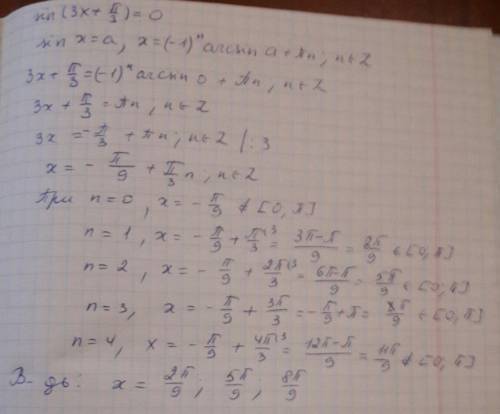 sin (3x + π/3) = 0
sin x = a, x = (-1)ⁿ arcsin a + πn; n ∈ Z
3x + π/3 = (-1)ⁿ arcsin 0 + πn, n ∈ Z
3x + π/3 = πn, n ∈ Z
3x = -π/3 + πn; n ∈ Z | : 3
x = - π/9 + π/3 n, n ∈ Z
При n = 0, x = - π/9 ∉ [0, π]
n = 1, x = - π/9 + π/3 ⁽³ = (3π-π)/9 = 2π/9 ∈ [0, π]
n = 2, x = - π/9 + 2π/3 ⁽³ = (6π-π)/9 = 5π/9 ∈ [0, π]
n = 3, x = - π/9 + 3π/3 = - π/9 + π = 8π/9 ∈ [0, π]
n = 4, x = - π/9 + 4π/3 ⁽³ = (12π-π)/9 = 11π/9 ∉ [0, π]
В-дь: x = 2π/9; 5π/9; 8π/9